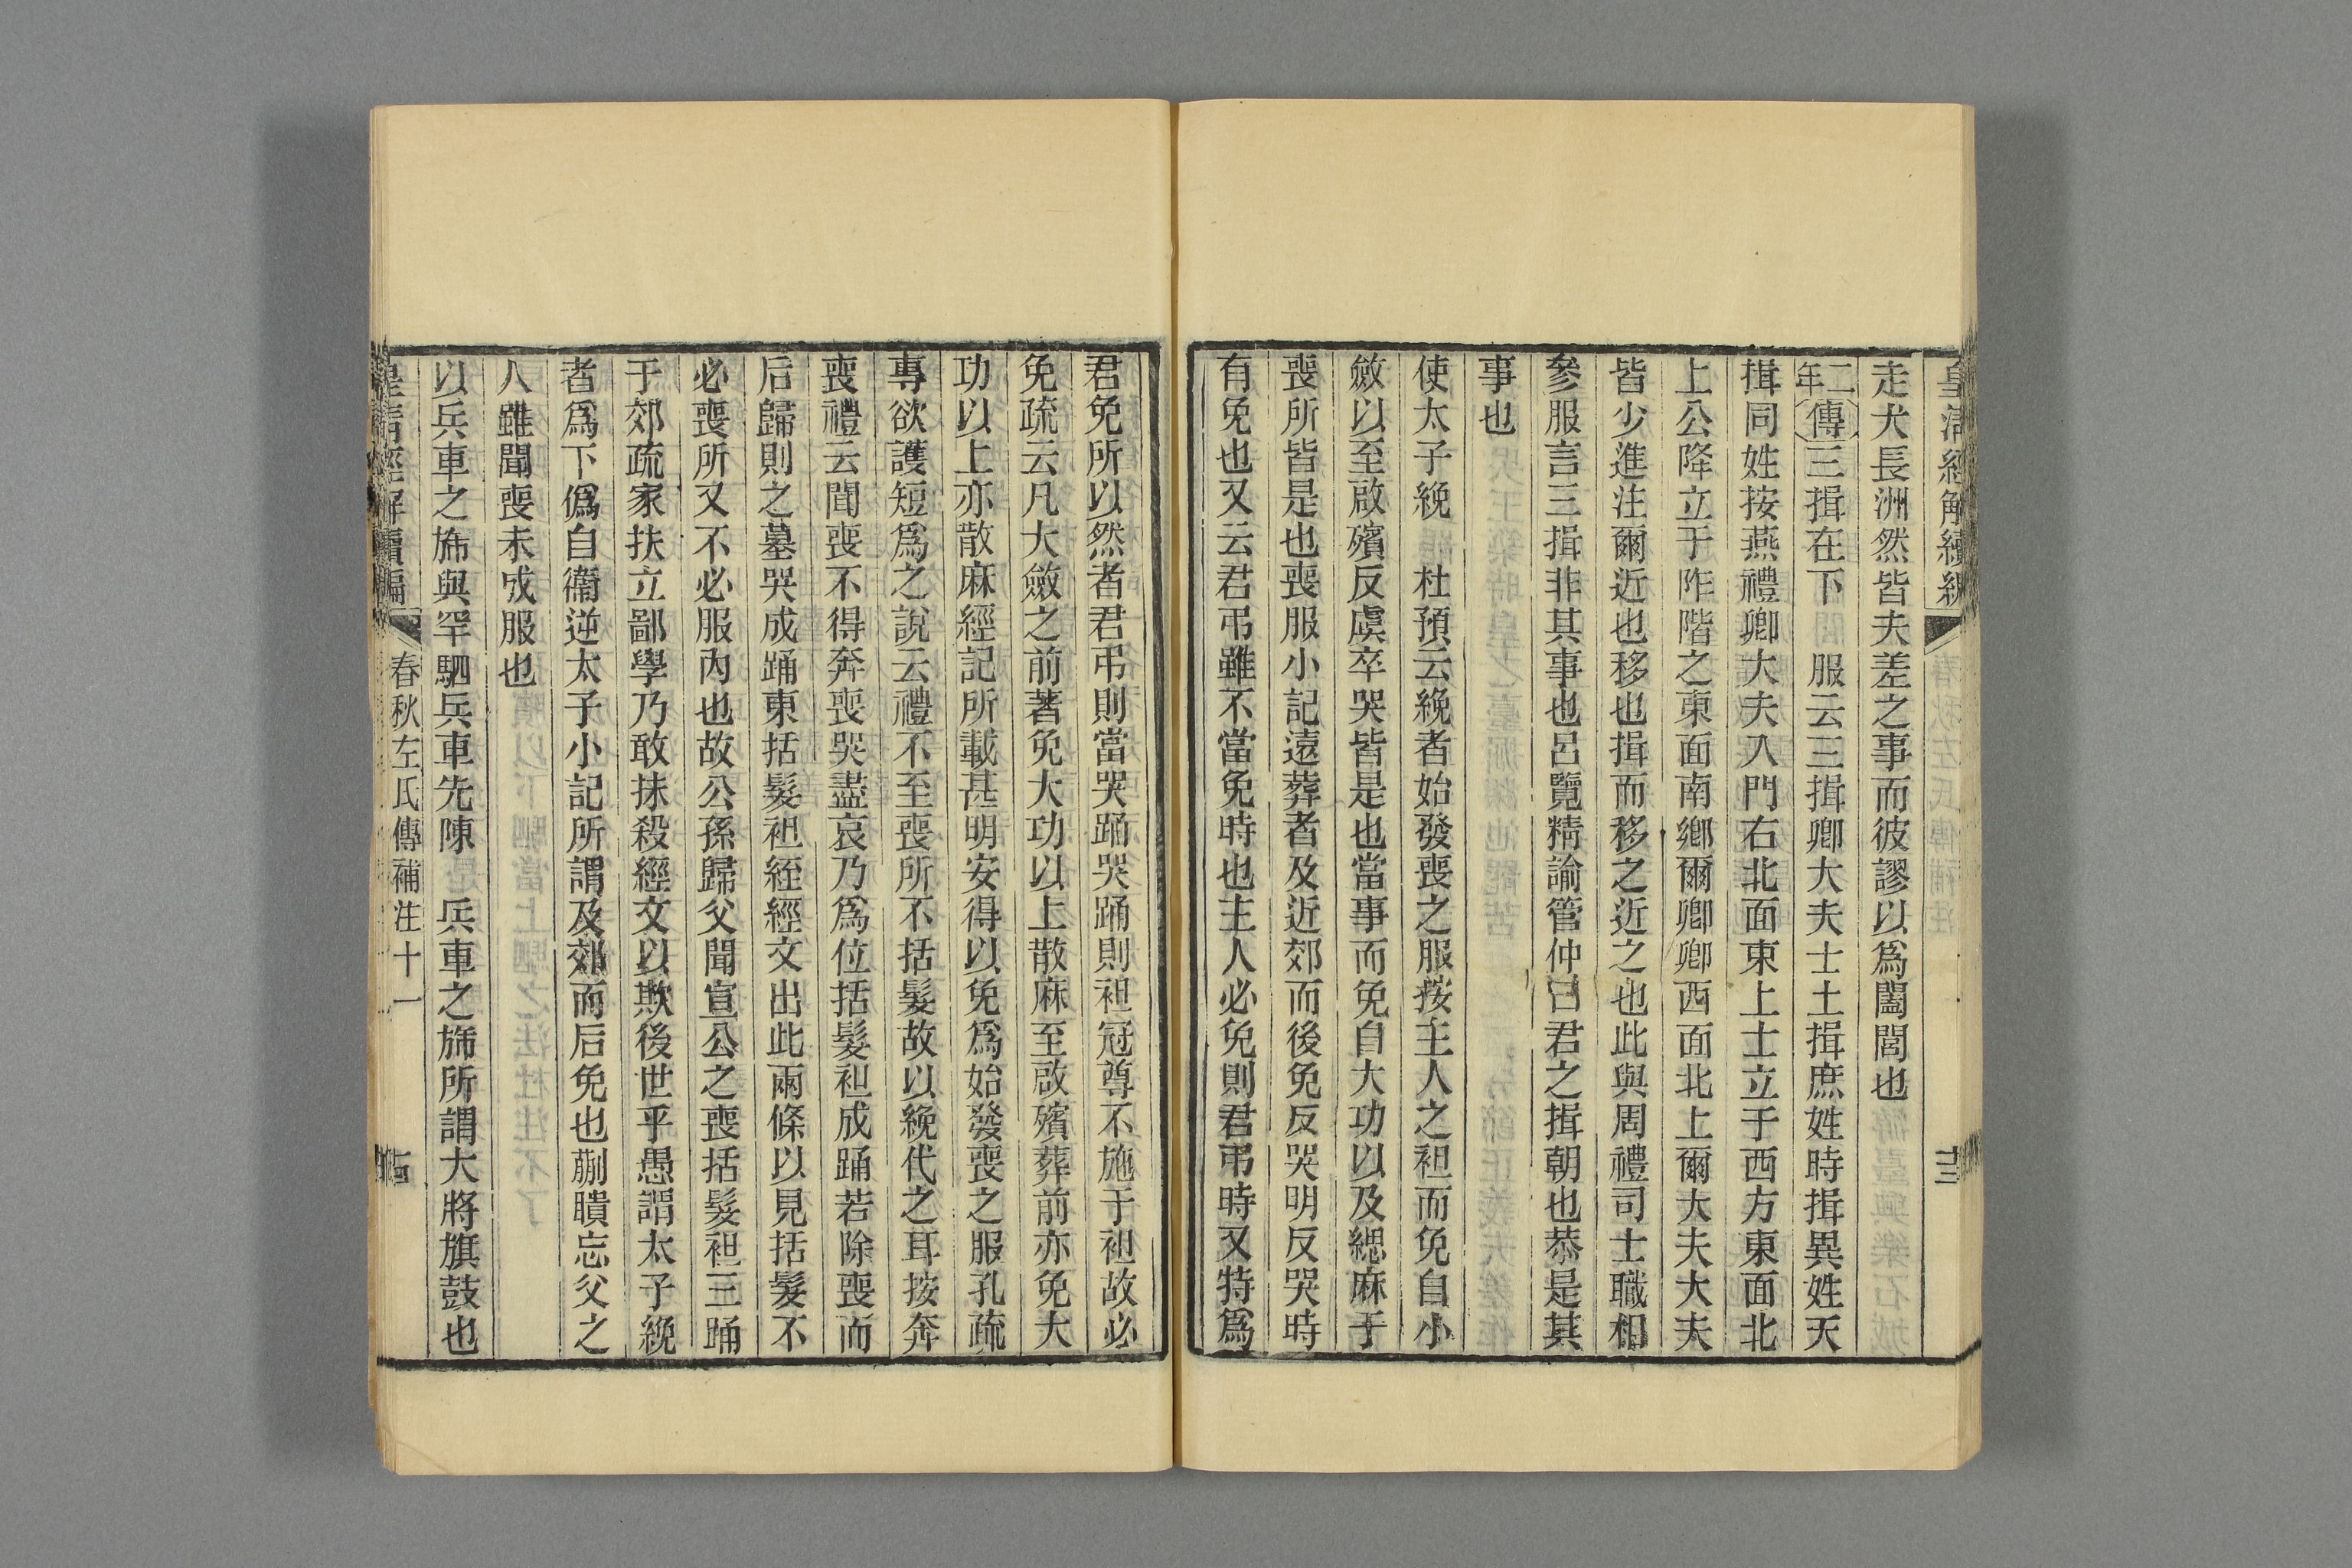 皇清經解續編
十三
走犬長洲然皆夫差之事而彼謬以爲闔閭也
二年傳三揖在下 服云三揖卿大夫士土揖庶姓時揖異姓天
揖同姓按燕禮卿大夫入門右北面東上士立于西方東面北
上公降立于阼階之東面南鄉爾卿卿西面北上爾大夫大夫
皆少進注爾近也移也揖而移之近之也此與周禮司士職相
參服言三揖非其事也呂覽精諭管仲曰君之揖朝也恭是其
事也
使太子絻 杜預云絻者始發喪之服按主人之袒而免自小
斂以至啟殯反虞卒哭皆是也當事而免自大功以及緦麻于
喪所皆是也喪服小記遠葬者及近郊而後免反哭明反哭時
有免也又云君弔雖不當免時也主人必免則君弔時又特爲
君免所以然者君弔則當哭踊哭踊則袒冠尊不施于袒故必
免疏云凡大斂之前著免大功以上散麻至啟殯葬前亦免大
功以上亦散麻經記所載甚明安得以免爲始發喪之服孔疏
專欲護短爲之說云禮不至喪所不括髮故以絻代之耳按奔
喪禮云聞喪不得奔喪哭盡哀乃爲位括髮袒成踊若除喪而
后歸則之墓哭成踊東括髮袒絰經文出此兩條以見括髮不
必喪所又不必服內也故公孫歸父聞宣公之喪括髮袒三踊
于郊疏家扶立鄙學乃敢抹殺經文以欺後世乎愚謂太子絻
者爲下僞自衞逆太子小記所謂及郊而后免也蒯聵忘父之
人雖聞喪未成服也
以兵車之旆與罕駟兵車先陳 兵車之旆所謂大將旗鼓也
皇清經解續編
春秋左氏傳補注十一